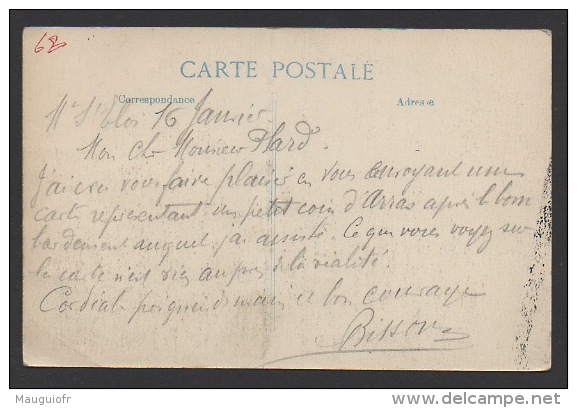 62
CARTE POSTALE
Correspondance
Adresse
Mt St Eloi 16 Janvier
Mon cher Monsieur Plard.
J'ai cru vous faire plaisir en vous envoyant une
carte représentant un petit coin d'Arras après le bom
bardement auquel j'ai assisté. Ce que vous voyez sur
la carte n'est rien auprès de la réalité.
Cordiale poignée de main et bon courage
Bisson
Mauguiofr
delcampe.net